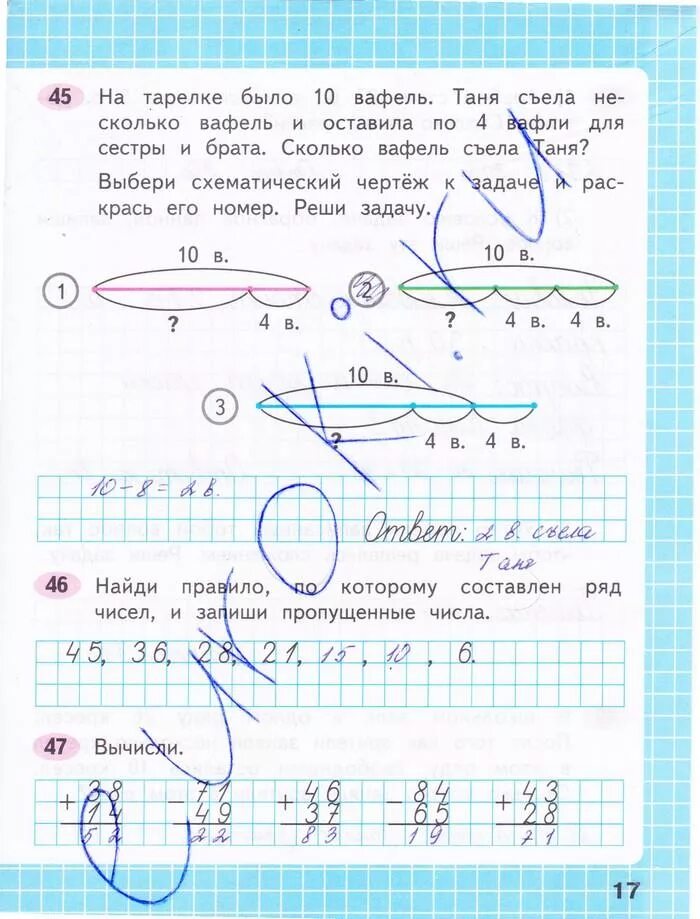 45 На тарелке было 10 вафель. Таня съела не-
сколько вафель и оставила по 4 вафли для
сестры и брата. Сколько вафель съела Таня?
Выбери схематический чертёж к задаче и рас-
крась его номер. Реши задачу.
10 в. 10 в.
1 2
? 4 в. ? 4 в. 4 в.
10 в.
3
? 4 в. 4 в.
10-8=2 в.
Ответ: 2 в. съела
Таня
46 Найди правило, по которому составлен ряд
чисел, и запиши пропущенные числа.
45, 36, 28, 21, 15, 10, 6.
47 Вычисли.
+ 38 - 71 + 46 - 84 + 43
14 49 37 65 28
52 22 83 19 71
17